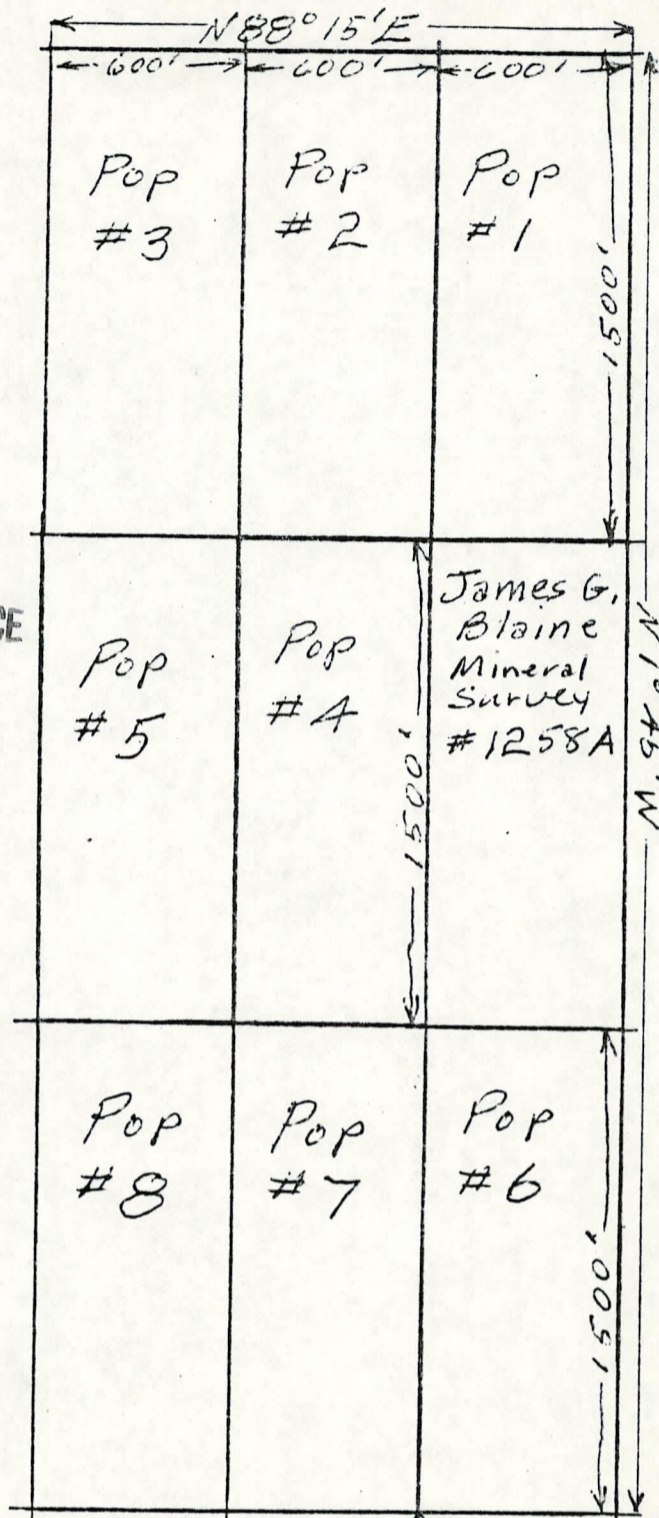 N 88° 15' E
600' 600' 600'
Pop
#3
Pop
#2
Pop
#1
1500'
CE
Pop
#5
Pop
#4
1500'
James G.
Blaine
Mineral
Survey
#1258A
N 1° 46' W
Pop
#8
Pop
#7
Pop
#6
1500'